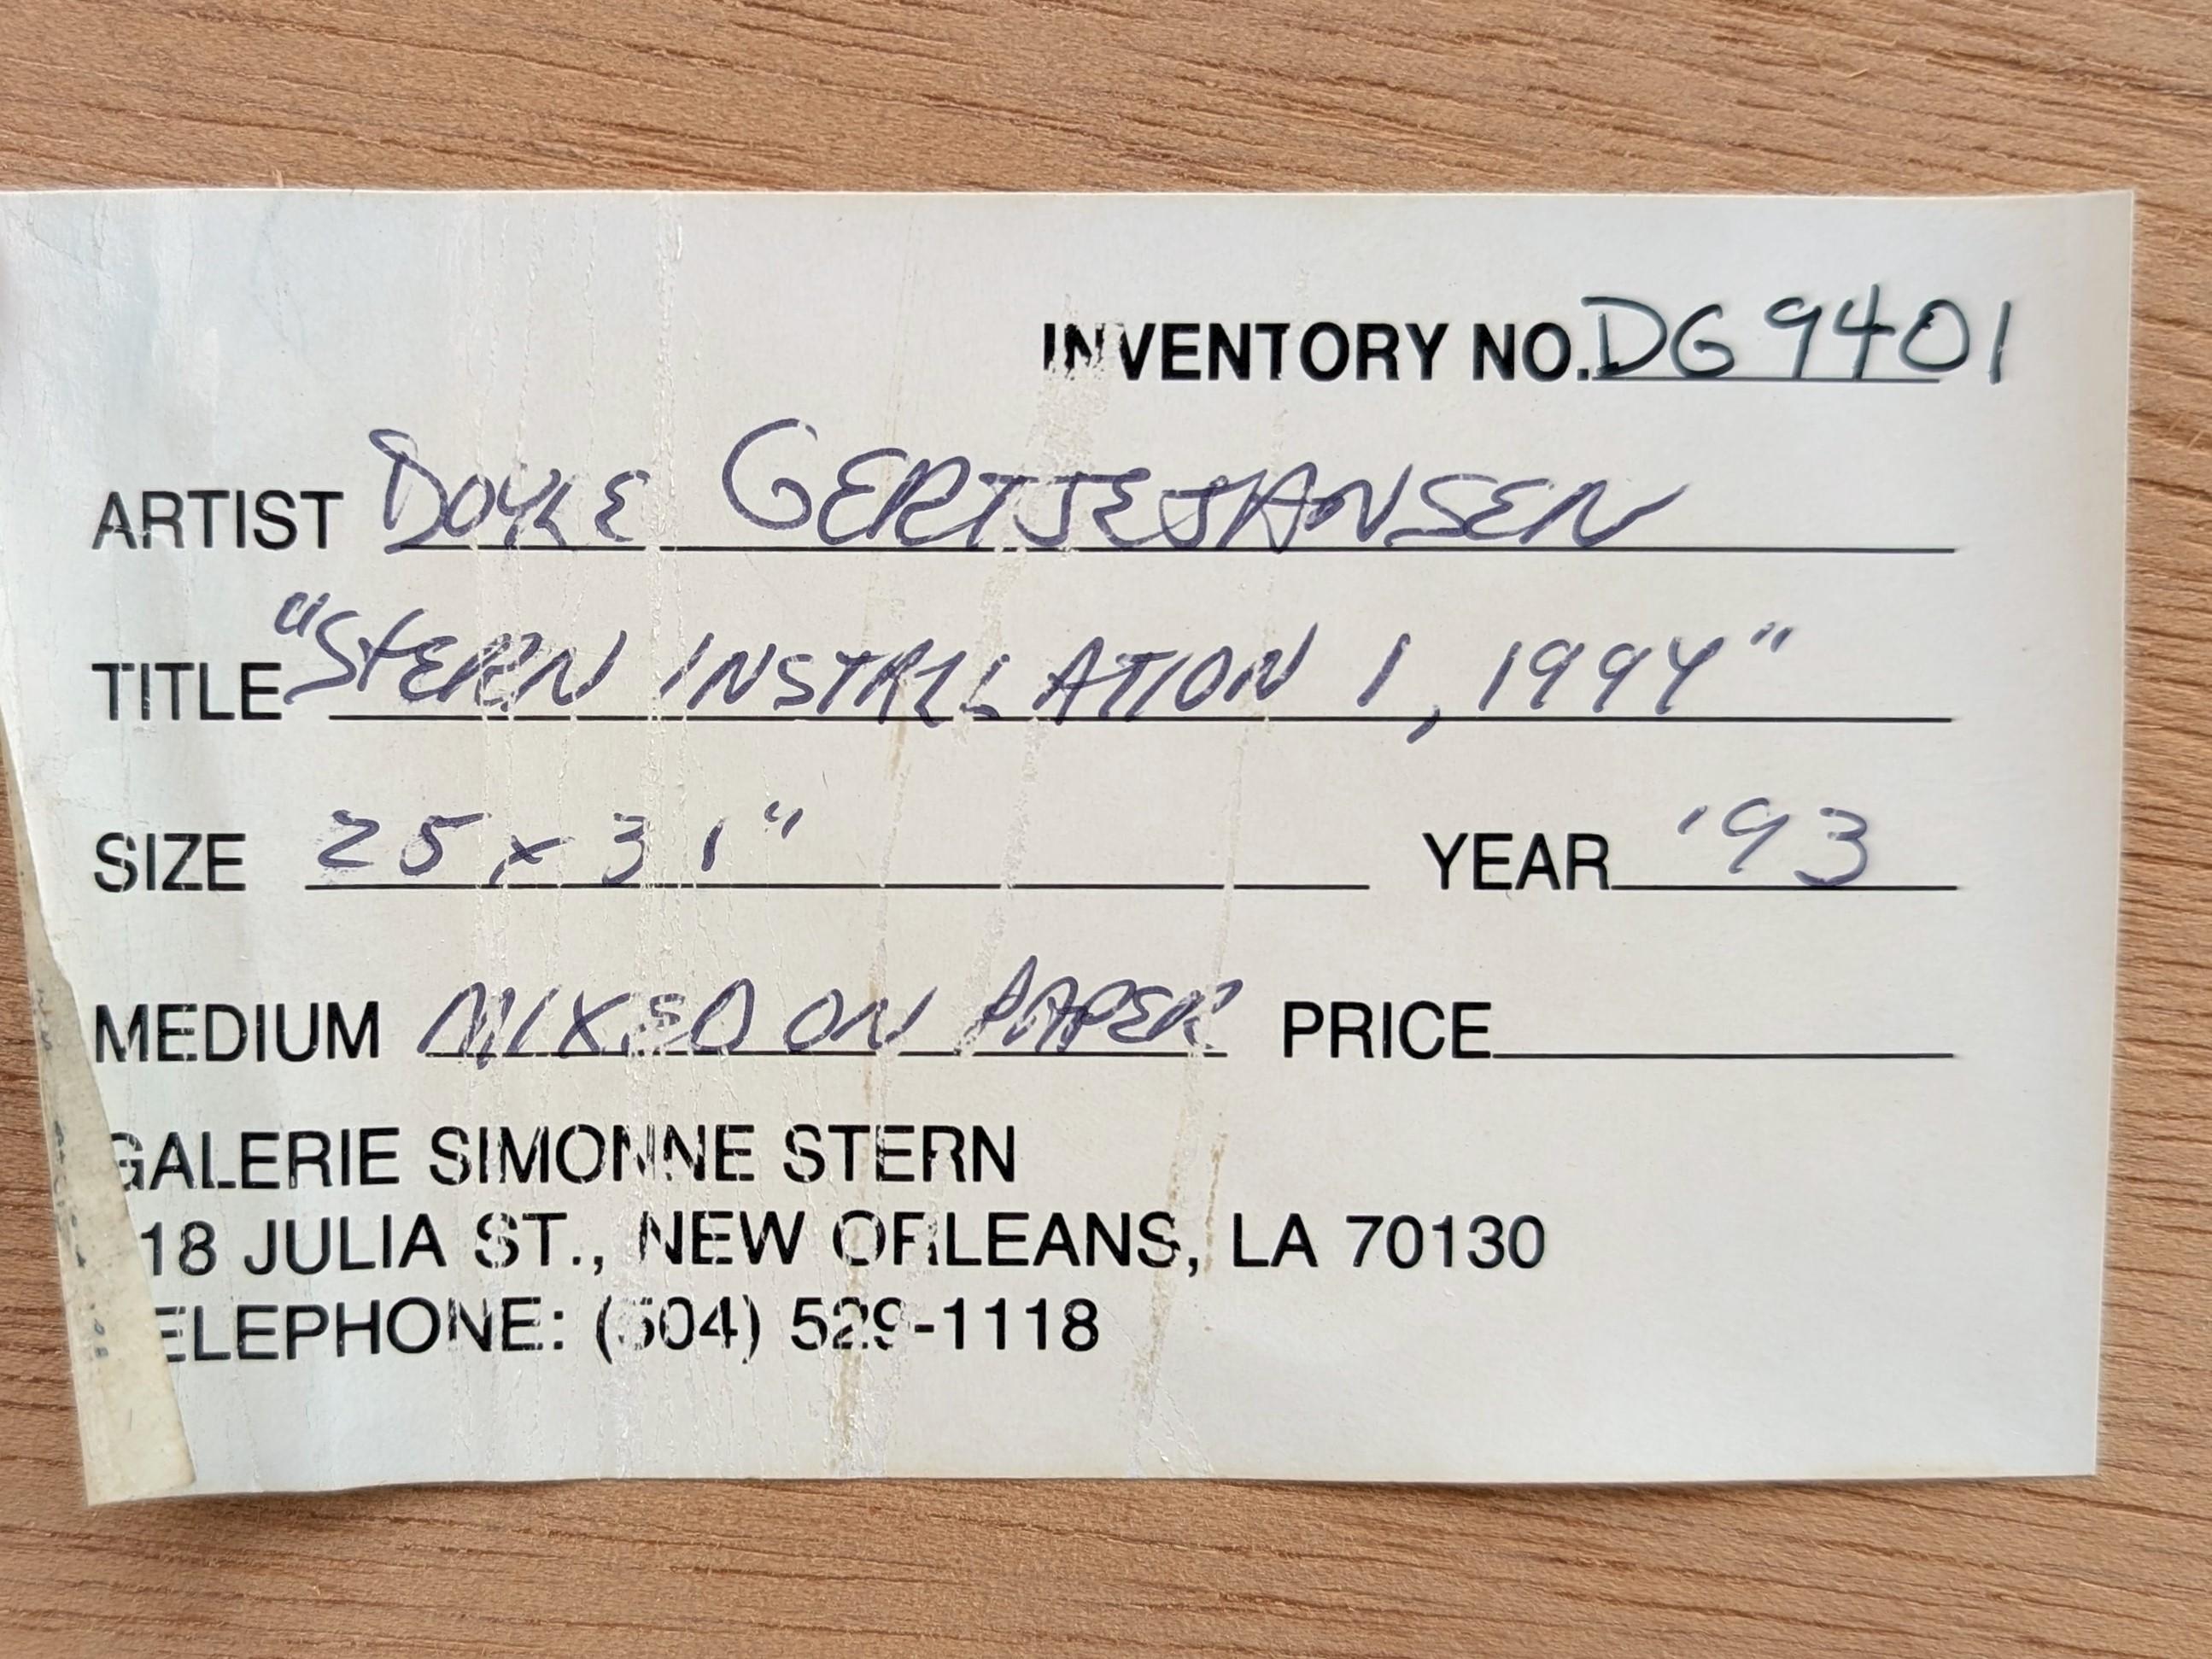 INVENTORY NO. DG 9401
ARTIST DOYLE GERTJEJANSEN
TITLE "STERN INSTALLATION 1, 1994"
SIZE 25 x 31" YEAR '93
MEDIUM MIXED ON PAPER PRICE
GALERIE SIMONNE STERN
18 JULIA ST., NEW ORLEANS, LA 70130
ELEPHONE: (504) 529-1118